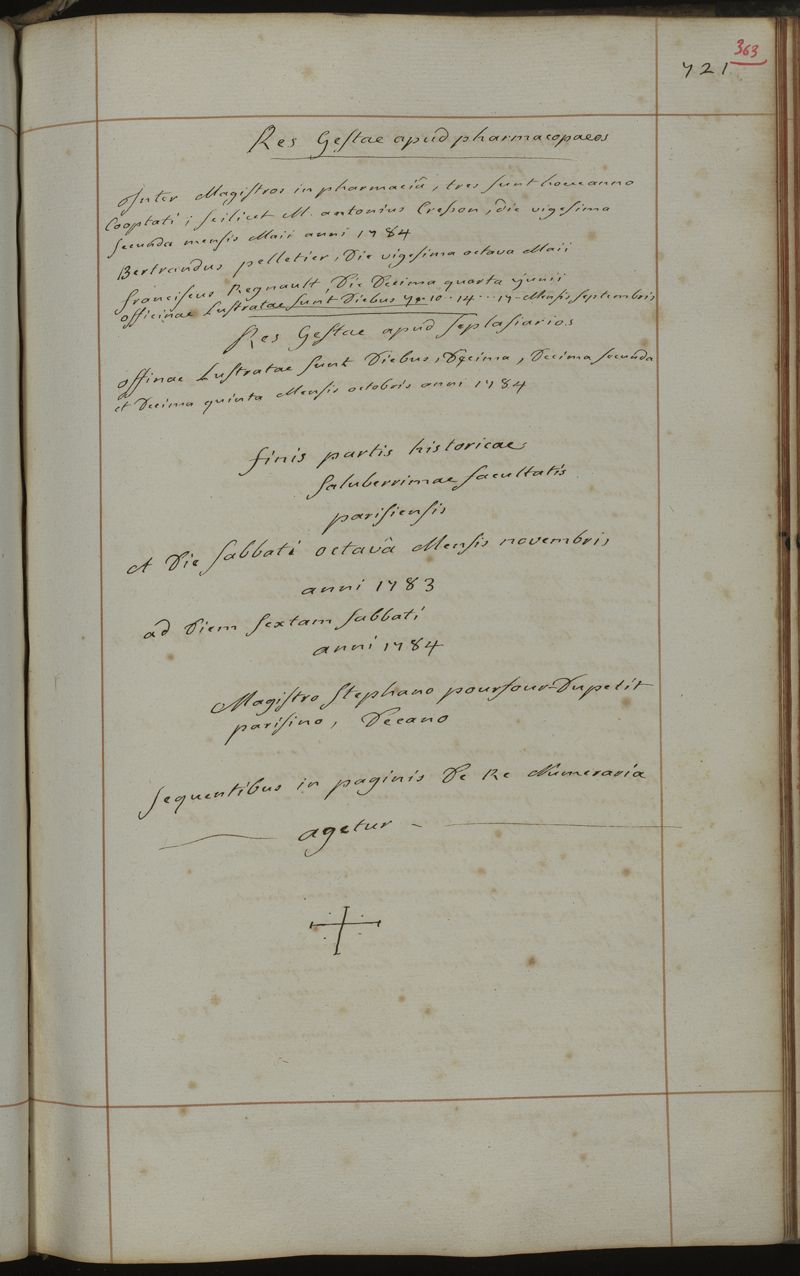 363
721
Res Gestae apud pharmacopaeos
Inter Magistros in pharmaciâ, tres sunt hocce anno
Cooptati; scilicet M. antonius Cresson, die vigesima
secunda mensis Maii anni 1784
Bertrandus pelletier, Die vigesima octava Maii
franciscus Regnault, Die Decima quarta junii
officinae Lustratae sunt Diebus 10 .. 14 ... 17 - Mensis septembris
Res Gestae apud seplasiarios
offinae Lustratae sunt Diebus, Decima, Decima secunda
et Decima quinta Mensis octobris anni 1784
finis partis historicae
saluberrimae facultatis
parisiensis
A Die sabbati octavâ Mensis novembris
anni 1783
ad Diem sextam sabbati
anni 1784
Magistro Stephano pourfour-Dupetit
parisino, Decano
sequentibus in paginis De Re Numeraria
agetur -